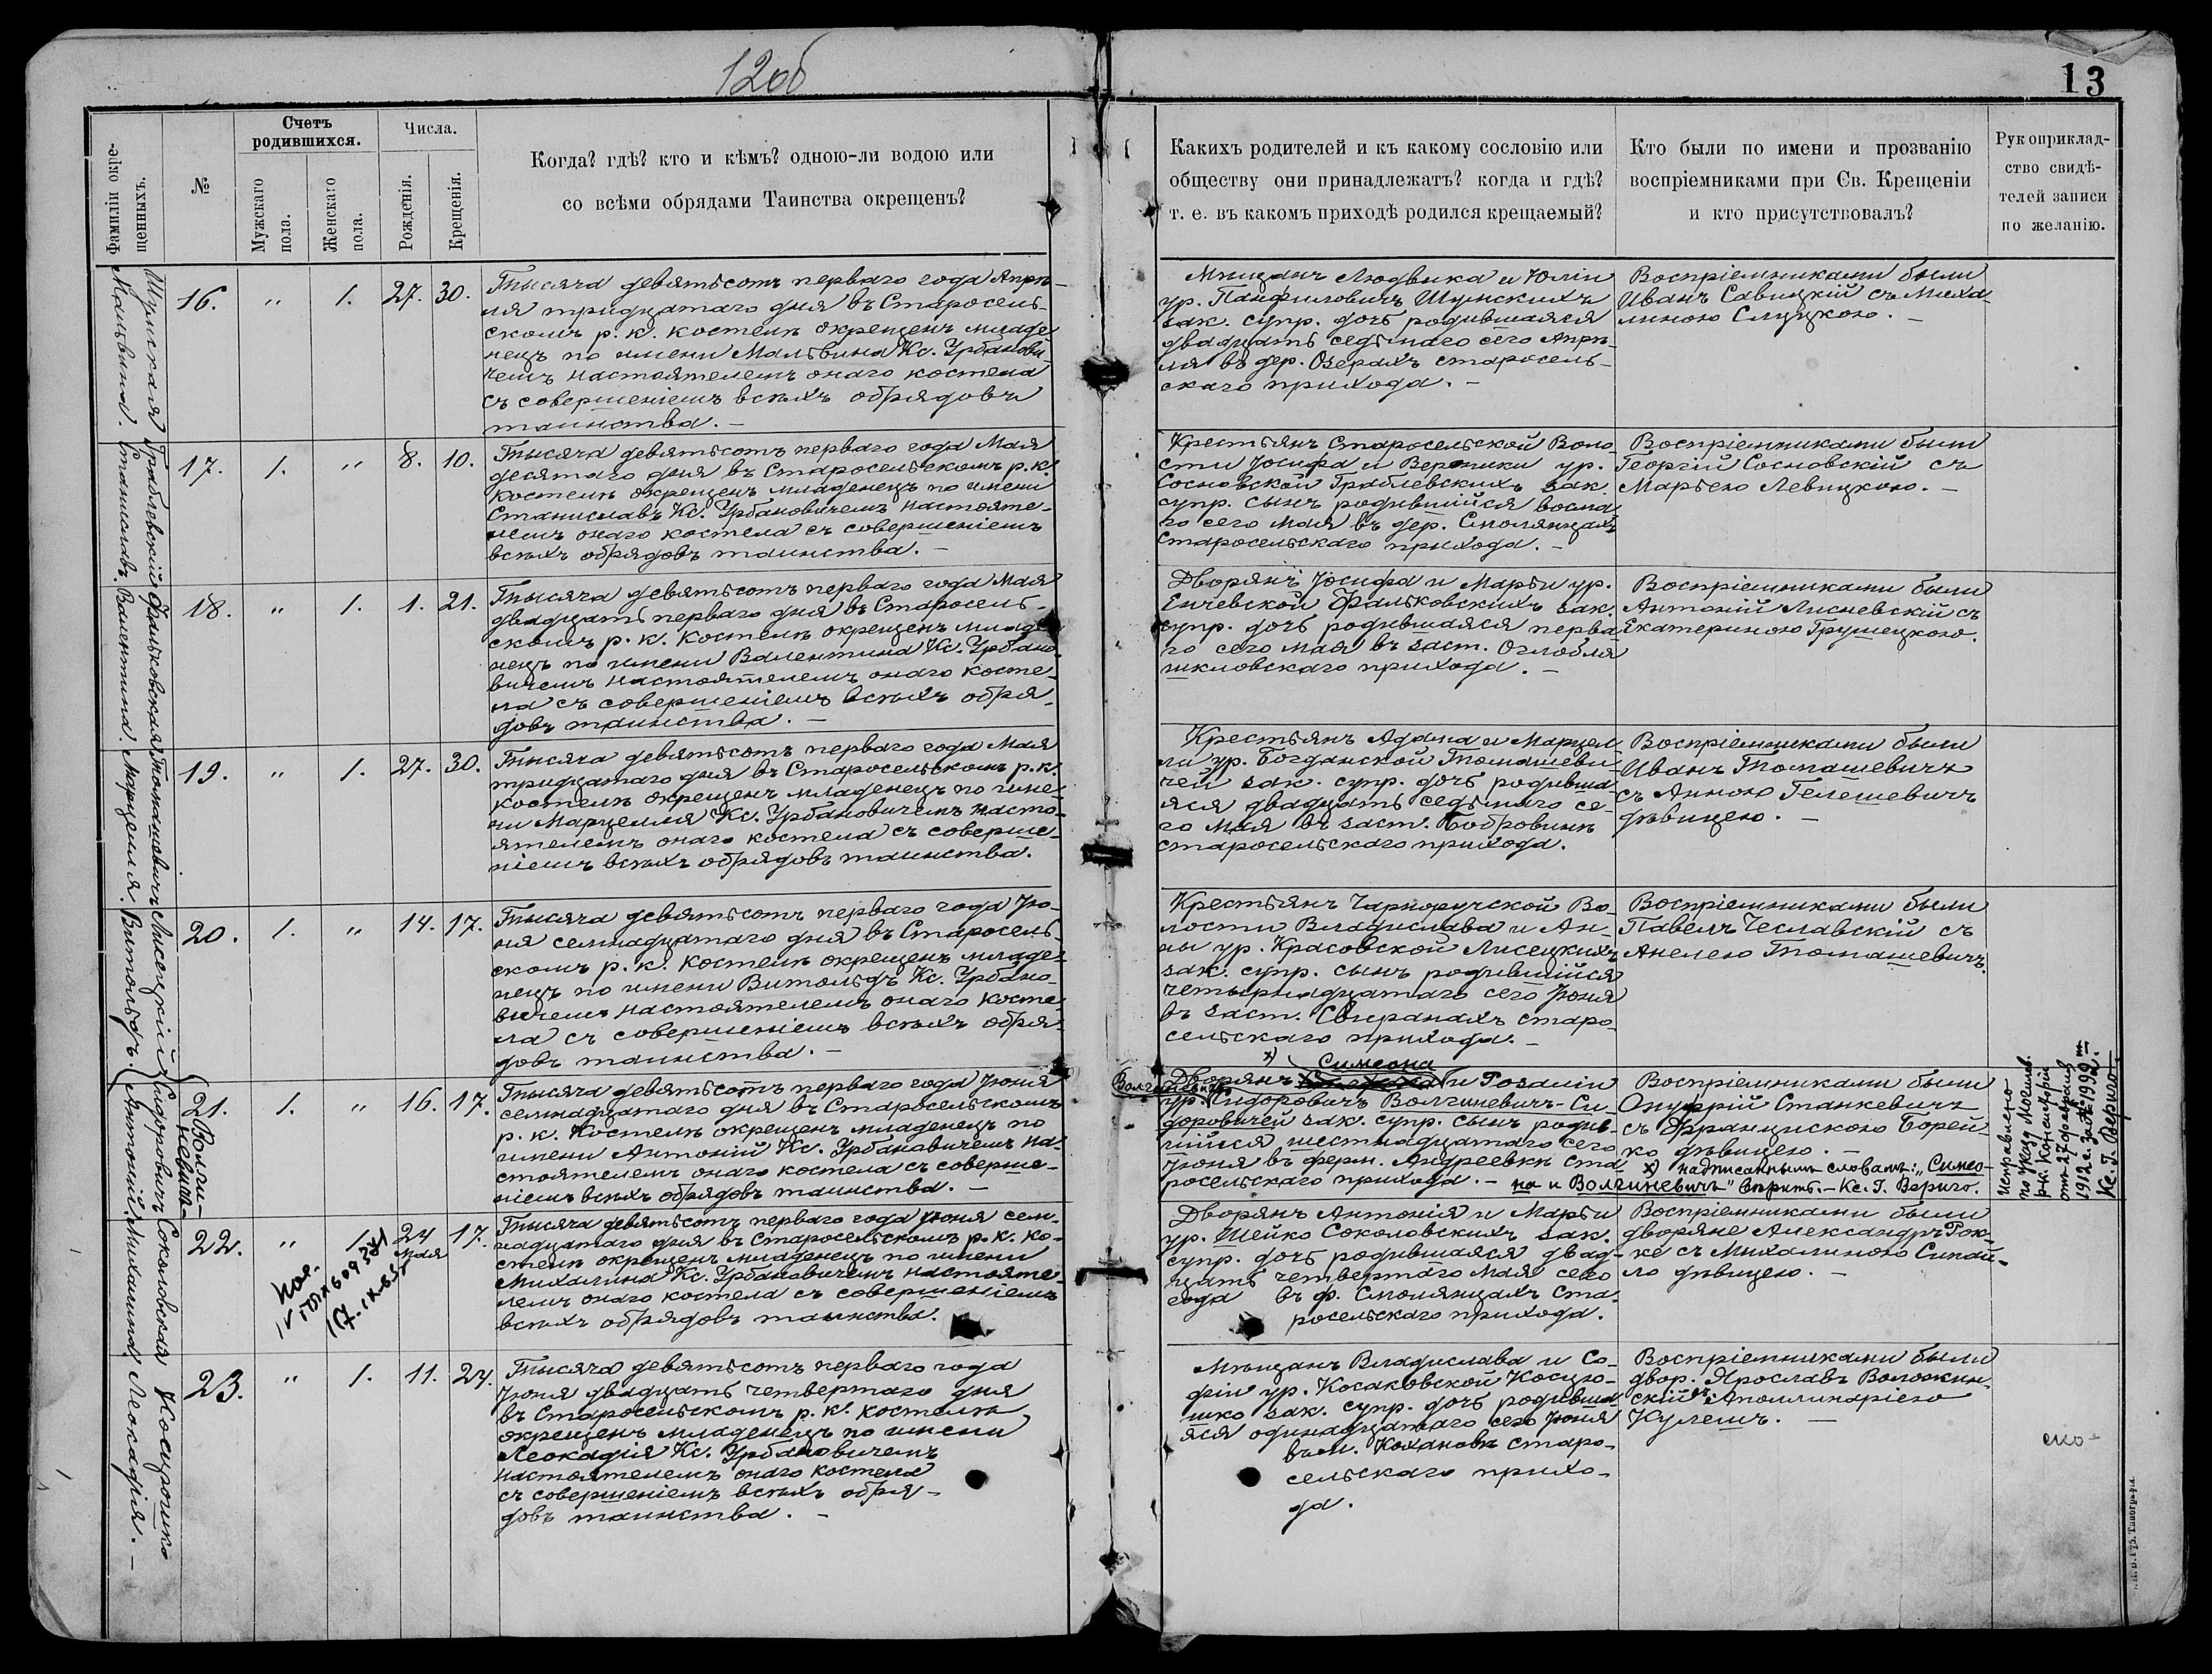 12об
13
Фамиліи окре-
щенныхъ.
№
Счетъ
родившихся.
Мужскаго
пола.
Женскаго
пола.
Числа.
Рожденія.
Крещенія.
Когда? гдѣ? кто и кѣмъ? одною-ли водою или
со всѣми обрядами Таинства окрещенъ?
Какихъ родителей и къ какому сословію или
обществу они принадлежатъ? когда и гдѣ?
т. е. въ какомъ приходѣ родился крещаемый?
Кто были по имени и прозванію
воспріемниками при Св. Крещеніи
и кто присутствовалъ?
Рукоприклад-
ство свидѣ-
телей записи
по желанію.
Шунская
Мальвина.
16. " 1. 27. 30.
Тысяча девятьсотъ перваго года Апрѣ-
ля тридцатаго дня въ Старосель-
скомъ р. к. костелѣ окрещенъ младе-
нецъ по имени Мальвина Кс. Урбанови-
чемъ настоятелемъ онаго костела
съ совершеніемъ всѣхъ обрядовъ
таинства. –
Мѣщанъ Людвика и Юліи
ур. Панфиловичъ Шунскихъ
зак. супр. дочь родившаяся
двадцать седьмаго сего Апрѣ-
ля въ дер. Озерахъ старосель-
скаго прихода. –
Воспріемниками были
Иванъ Савицкій съ Миха-
линою Слуцкою. –
Граблевскій
Станиславъ.
17. 1. " 8. 10.
Тысяча девятьсотъ перваго года Мая
десятаго дня въ Старосельскомъ р. к.
костелѣ окрещенъ младенецъ по имени
Станиславъ Кс. Урбановичемъ настояте-
лемъ онаго костела съ совершеніемъ
всѣхъ обрядовъ таинства. –
Крестьянъ Старосельской Воло-
сти Іосифа и Вероники ур.
Сосновской Граблевскихъ зак.
супр. сынъ родившійся восма-
го сего Мая въ дер. Смолянцахъ
Старосельскаго прихода. –
Воспріемниками были
Георгій Сосновскій съ
Марьею Левицкою. –
Фальковская
Валентина.
18. " 1. 1. 21.
Тысяча девятьсотъ перваго года Мая
двадцать перваго дня въ Старосель-
скомъ р. к. костелѣ окрещенъ младе-
нецъ по имени Валентина Кс. Урбано-
вичемъ настоятелемъ онаго косте-
ла съ совершеніемъ всѣхъ обря-
довъ таинства. –
Дворянъ Іосифа и Марьи ур.
Енчевской Фальковскихъ зак.
супр. дочь родившаяся перва-
го сего Мая въ заст. Оглобля
шкловскаго прихода. –
Воспріемниками были
Антоній Лисневскій съ
Екатериною Грушецкою.
Томашевичъ
Марцелля.
19. " 1. 27. 30.
Тысяча девятьсотъ перваго года Мая
тридцатаго дня въ Старосельскомъ р. к.
костелѣ окрещенъ младенецъ по име-
ни Марцелля Кс. Урбановичемъ насто-
ятелемъ онаго костела съ соверше-
ніемъ всѣхъ обрядовъ таинства.
Крестьянъ Адама и Марцел-
ли ур. Богданской Томашеви-
чей зак. супр. дочь родивша-
яся двадцать седьмаго се-
го Мая въ заст. Бобровинѣ
старосельскаго прихода.
Воспріемниками были
Иванъ Томашевичъ
съ Анною Гелешевичъ
дѣвицею. –
Лисецкій
Витольдъ.
20. 1. " 14. 17.
Тысяча девятьсотъ перваго года Ію-
ня семнадцатаго дня въ Старосель-
скомъ р. к. костелѣ окрещенъ младе-
нецъ по имени Витольдъ Кс. Урбано-
вичемъ настоятелемъ онаго косте-
ла съ совершеніемъ всѣхъ обря-
довъ таинства. –
Крестьянъ Чарноручской Во-
лости Владислава и Ан-
ны ур. Красовской Лисецкихъ
зак. супр. сынъ родившійся
четырнадцатаго сего Іюня
въ заст. Свиранахъ старо-
сельскаго прихода. –
Воспріемниками были
Павелъ Чеславскій съ
Анелею Томашевичъ.
Сидоровичъ
Антоній.
21. 1. " 16. 17.
Волги-
невичъ-
Тысяча девятьсотъ перваго года Іюня
семнадцатаго дня въ Старосельскомъ
р. к. костелѣ окрещенъ младенецъ по
имени Антоній Кс. Урбановичемъ на-
стоятелемъ онаго костела съ соверше-
ніемъ всѣхъ обрядовъ таинства. –
х) Симеона
Волгиневичъ
Дворянъ и Розаліи
ур. Сидоровичъ Волгиневичъ-Си-
доровичей зак. супр. сынъ родив-
шійся шестнадцатаго сего
Іюня въ ферм. Андреевкѣ Ста-
росельскаго прихода. –
Воспріемниками были
Онуфрій Станкевичъ
съ Францискою Борей-
ко дѣвицею. –
х) надписаннымъ словамъ: „Симео-
на и Волгиневичъ" вѣрить. – Кс. Г. Вериго.
Исправлено
по Указу Могилев.
р-к. Консисторіи
отъ 27 февраля
1912 г. за № 1999
Кс. Г. Вериго.
Соколовская
Михалина
22. " 1. 24 Мая 17.
Тысяча девятьсотъ перваго года Іюня сем-
надцатаго дня въ Старосельскомъ р. к. ко-
стелѣ окрещенъ младенецъ по имени
Михалина Кс. Урбановичемъ настояте-
лемъ онаго костела съ совершеніемъ
всѣхъ обрядовъ таинства.
Дворянъ Антонія и Марьи
ур. Шейко Соколовскихъ зак.
супр. дочь родившаяся двад-
цать четвертаго Мая сего
года въ ф. Смолянцахъ Ста-
росельскаго прихода.
Воспріемниками были
дворяне Александръ Рок-
ке съ Михалиною Синай-
ло дѣвицею. –
Косцюшко
Леокадія. –
23. " 1. 11. 24.
Тысяча девятьсотъ перваго года
Іюня двадцать четвертаго дня
въ Старосельскомъ р. к. костелѣ
окрещенъ младенецъ по имени
Леокадія Кс. Урбановичемъ
настоятелемъ онаго костела
съ совершеніемъ всѣхъ обря-
довъ таинства. –
Мѣщанъ Владислава и Со-
фіи ур. Косаковской Косцю-
шко зак. супр. дочь родивша-
яся одинадцатаго сего Іюня
въ м. Кохановѣ старо-
сельскаго прихо-
да.
Воспріемниками были
двор. Ярославъ Воложин-
скій съ Аполлинаріею
Кулешъ. –